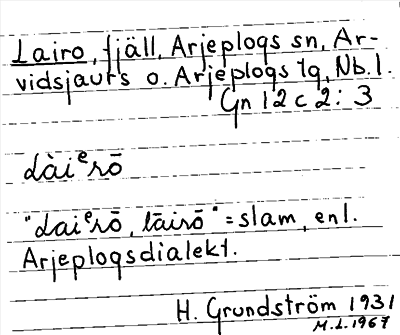 Lairo, fjäll, Arjeplogs sn, Ar-
vidsjaurs o. Arjeplogs tg, Nb. l.
Gn 12 c 2: 3
làiᵉrō
"laiᵉrō, lāirō" = slam, enl.
Arjeplogsdialekt.
H. Grundström 1931
M.L. 1967